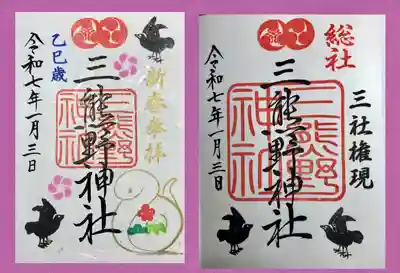 乙巳歳
新春奉拝
三熊野神社
三熊野神社
令和七年一月三日
総社
三社権現
三熊野神社
三熊野神社
令和七年一月三日